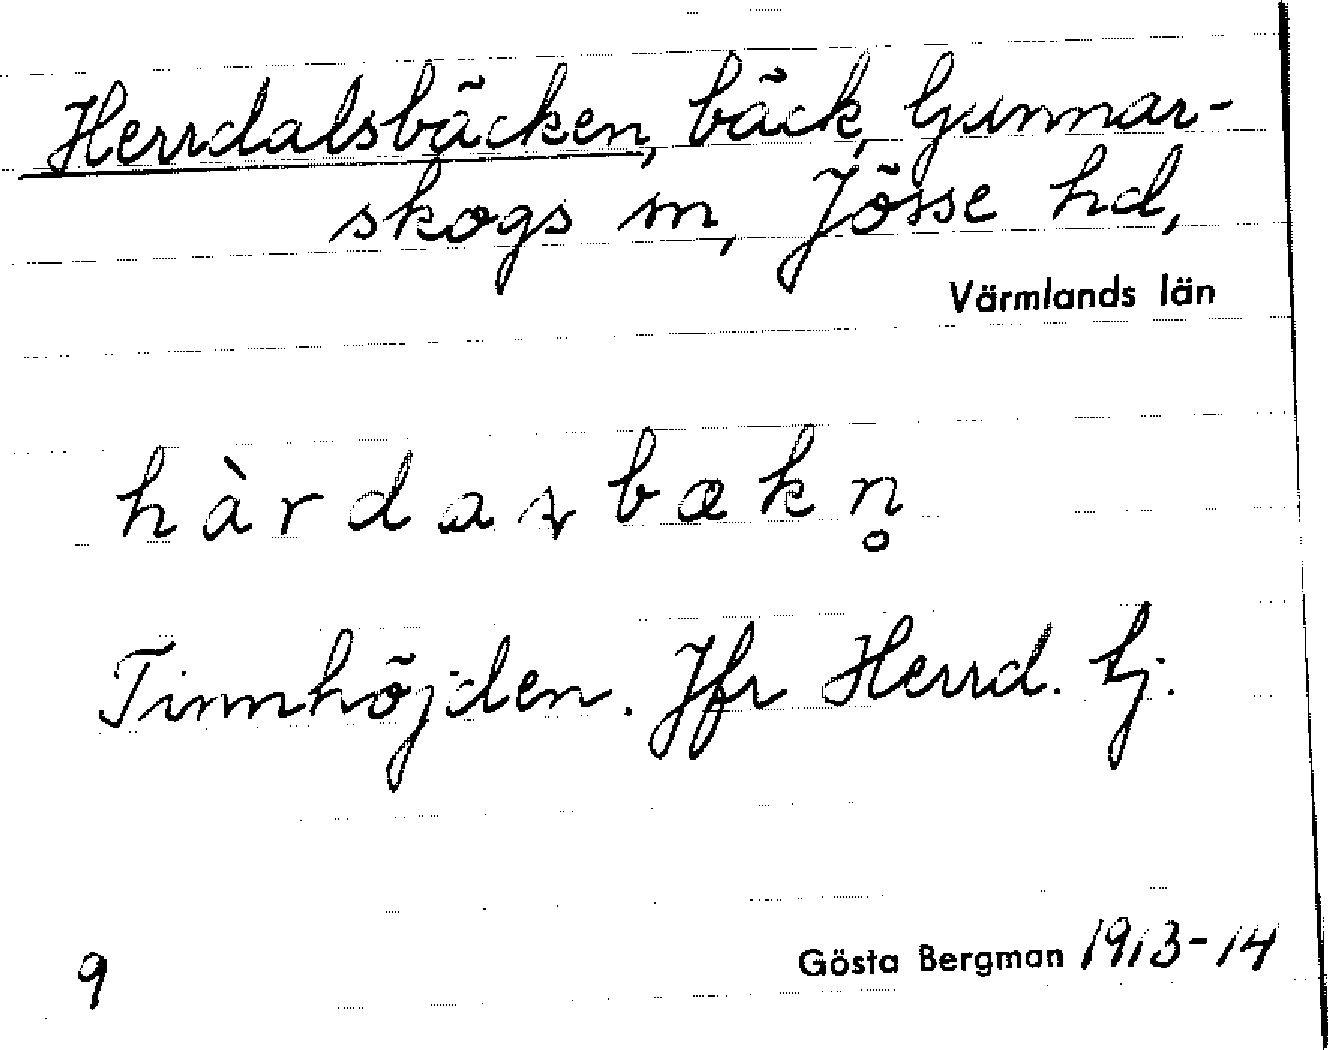 Herrdalsbäcken, bäck, Gunnar-
skogs sn, Jösse hd,
Värmlands län
hàrdaʂbækn̥
Tinnhöjden. Jfr Herrd. hj.
9
Gösta Bergman 1913-14